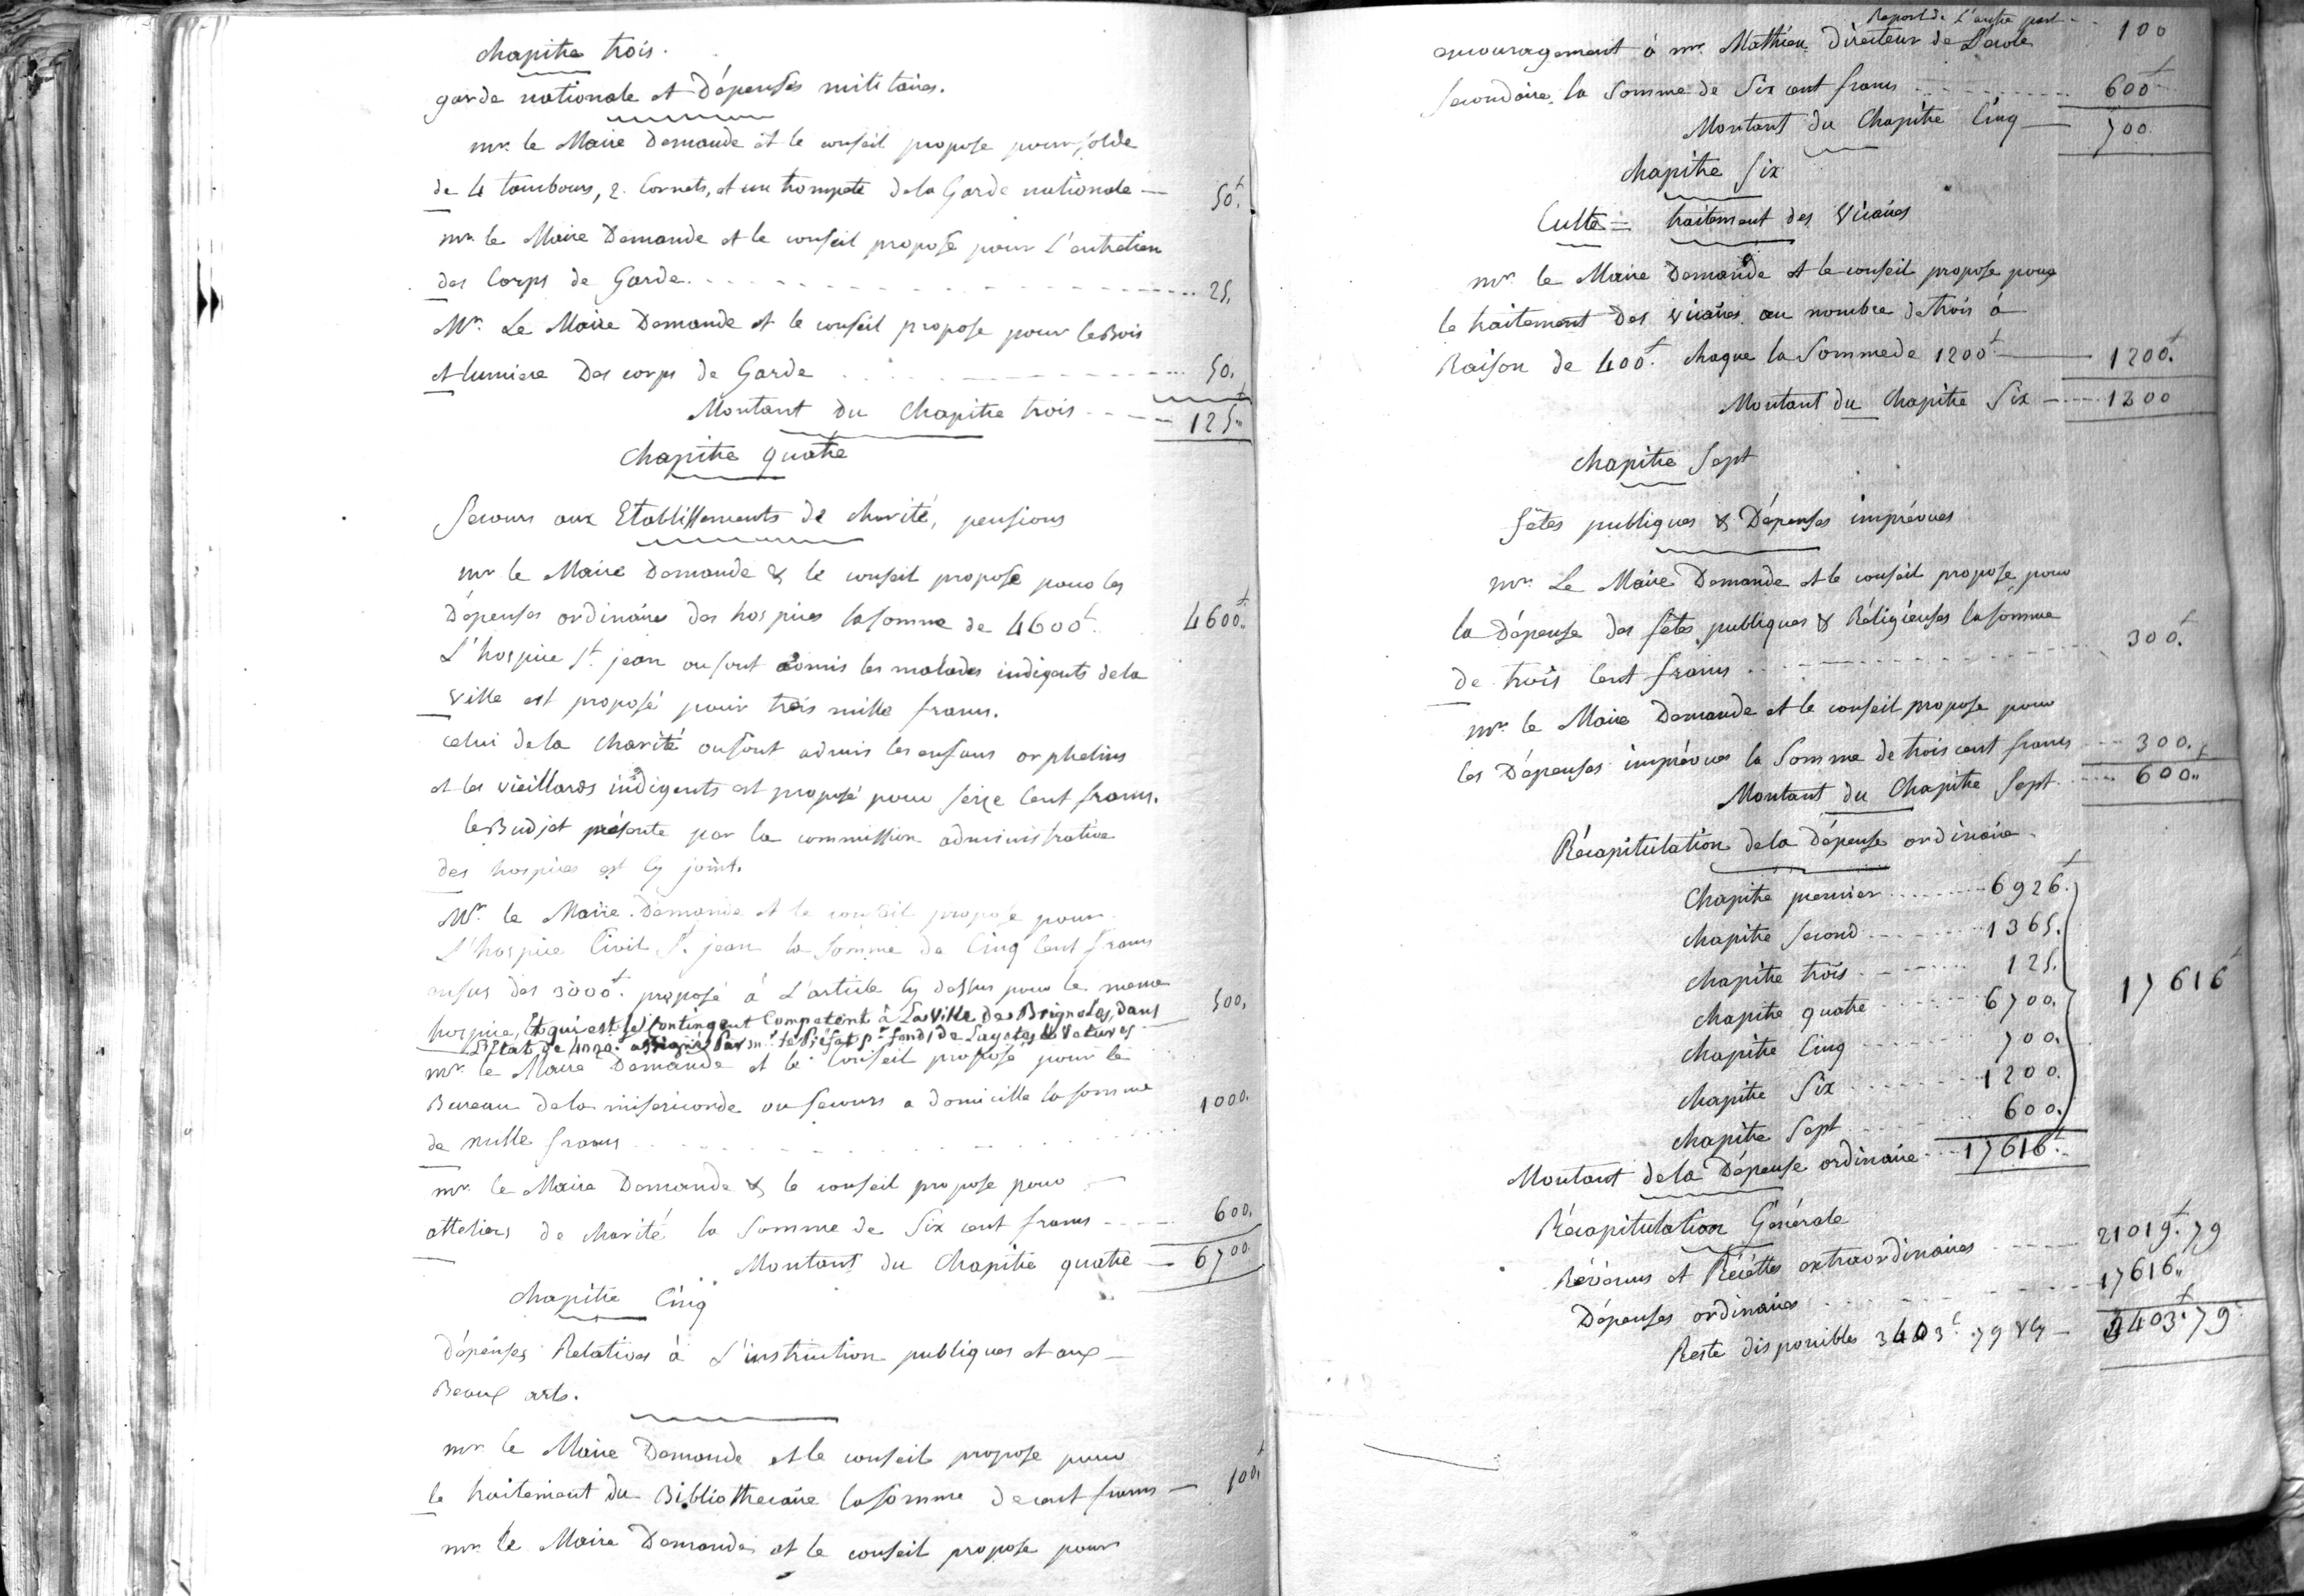 chapitre trois.
garde nationale et Dépenses militaires.
mr. le Maire Demande et le conseil propose pour solde
de 4 tambours, 2. Cornets, et un trompete de la Garde nationale — 50.f
mr. le Maire Demande et le conseil propose pour l'entretien
des Corps de Garde. 25.
Mr. Le Maire Demande et le conseil propose pour le Bois
et lumiere Des corps de Garde 50.
Montant Du Chapitre trois 125.f
Chapitre quatre
Secours aux Etablissements de charité, pensions
mr le Maire Demande & le conseil propose pour les
Dépenses ordinaires des hospices la somme de 4600f. 4600.f
L'hospice St. jean ou sont admis les malades indigents de la
ville est proposé pour trois mille francs.
celui de la charité ou sont admis les enfans orphelins
et les vieillards indigents est proposé pour seize cent francs.
le Budjet présente par la commission administrative
des hospices est cy joint.
Mr. le Maire Demande et le conseil propose pour
L'hospice Civil St. jean la somme de Cinq Cent francs
ensus des 3000f. proposé à L'article cy dessus pour le meme
hospice, Et qui est le Contingent Competent à La Ville de Brignoles, dans 500.
L'Etat de 4000. assigné Par mr. le Préfet pr. fonds de Layetes & Vetures
mr. le Maire Demande et le Conseil propose pour le
Bureau de la misericorde ou secours a domicille la somme
de mille francs 1000.
mr. le Maire Demande & le conseil propose pour
atteliers de charité la somme de Six cent francs 600.
Montant du Chapitre quatre — 6700.
Chapitre Cinq
dépenses Relatives à L'instruction publiques et aux
Beaux arts.
mr. le Maire Demande et le conseil propose pour
le traitement du Bibliothecaire la somme de cent francs — 100.f
mr. le Maire Demande et le conseil propose pour
Report de L'autre part 100
encouragement à mr. Mathieu Directeur de L'ecole
secondaire, la Somme de Six cent francs 600f
Montant du Chapitre Cinq — 700.
Chapitre Six
Culte = traitement des Vicaires
mr. le Maire Demande et le conseil propose pour
le traitement Des vicaires au nombre de trois à
Raison de 400f. chaque la Somme de 1200f — 1200.f
Montant du Chapitre Six 1200
chapitre Sept
fêtes publiques & Dépenses imprévues
mr. Le Maire Demande et le conseil propose pour
la Dépense des fêtes publiques & Réligieuses la somme
de trois Cent francs 300.f
mr. le Maire Demande et le conseil propose pour
les Dépenses imprévues la Somme de trois cent francs 300.
Montant du Chapitre Sept 600.f
Récapitulation de la Dépense ordinaire
Chapitre premier 6926.f
chapitre Second 1365.
chapitre trois 125.
chapitre quatre 6700. 17616f
chapitre Cinq 700.
chapitre Six 1200.
chapitre Sept 600.
Montant de la Dépense ordinaire 17616f.
Récapitulation Générale
Révénus et Récéttes extraordinaires 21019.f79
Dépenses ordinaires 17616.
Reste disponibles 3403f.79 & cy — 3403.f79